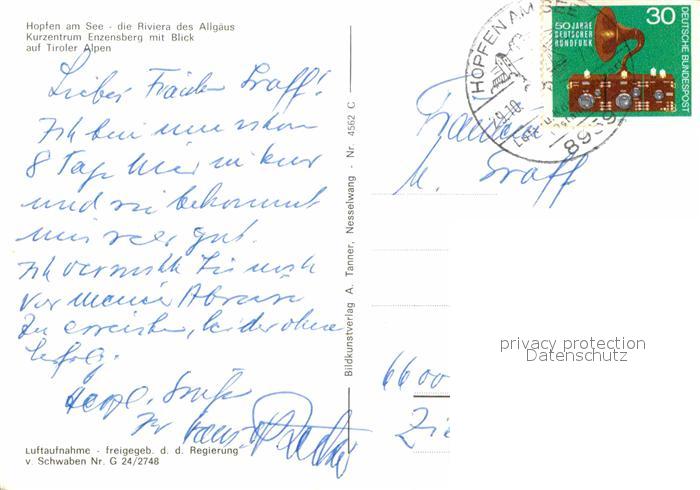 Hopfen am See - die Riviera des Allgäus
Kurzentrum Enzensberg mit Blick
auf Tiroler Alpen
Liebes Fräulein Graff!
Ich bin nun schon
8 Tage hier in Kur
und sie bekommt
mir sehr gut.
Ich versuchte Sie noch
vor meiner Abreise
zu erreichen, leider ohne
Erfolg.
Herzl. Grüße
Ihr Hans
Luftaufnahme - freigegeb. d. d. Regierung
v. Schwaben Nr. G 24/2748
Bildkunstverlag A. Tanner, Nesselwang · Nr. 4562 C
HOPFEN AM SEE
8959
50 JAHRE
DEUTSCHER
RUNDFUNK
30
DEUTSCHE BUNDESPOST
Fräulein
Graff
privacy protection
Datenschutz
6600